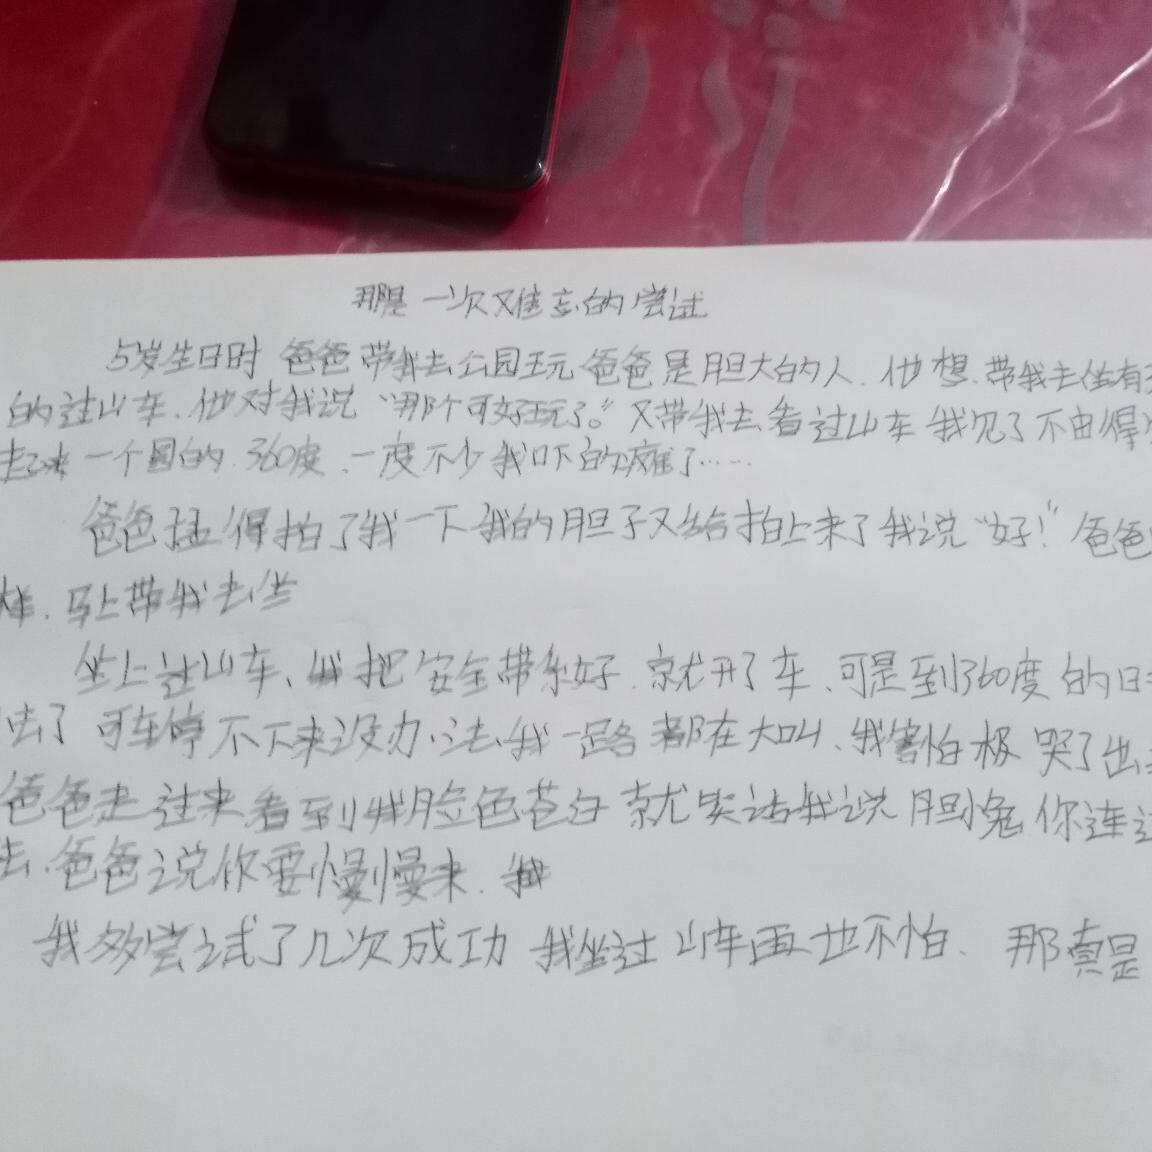 那是一次难忘的尝试
5岁生日时 爸爸带我去公园玩爸爸是胆大的人.他想.带我去坐有
的过山车.他对我说"那个可好玩了。"又带我去看过山车 我见了不由得
一个圆的.360度.一度不少我吓的瘫了……
爸爸猛得拍了我一下我的胆子又给拍上来了我说"好!"爸爸
样.马上带我去坐
坐上过山车、我把安全带系好.就开了车、可是到360度的
去了 可车停不下来没办法、我一路都在大叫、我害怕极哭了出
爸爸走过来看到我脸色苍白就笑话我说胆小鬼你连
去.爸爸说你要慢慢来.我
我多尝试了几次成功 我坐过山车再也不怕.那真是